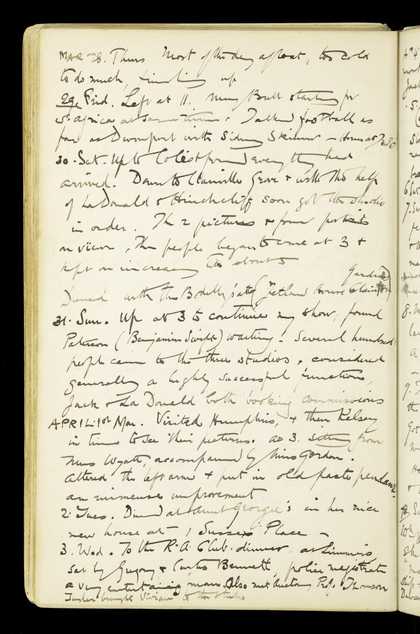 MAR 28. Thurs. Most of the day afloat, too cold
to do much, finishing up
29 Frid. Left at 11. Miss Bull starting for
S. Africa at same time. Talked football as
far as Davenport with Sidney Skinner
30. Sat. Up to Colet found everything had
arrived. Down to Clareville Grove & with the help
of La Donald & Hinchcliff soon got the studio
in order. The 2 pictures & four portraits
on view. The people began to come at 3 &
kept on increasing till about 5
Dined with the Bodellys at Jetland House
Gardens
31. Sun. Up at 3 to continue my show, found
Paterson (Benjamin Swift) waiting. Several hundred
people came to the three studios, considered
generally a highly successful function,
Jack & La Donald both booking commissions
APRIL-1st Mon. Visited Humphris, & then Kelsey
in time to see their pictures. at 3. sitting from
Miss Wyatt, accompanied by Miss Gordon.
Altered the left arm & put in old paste pendant.
an immense improvement
2. Tues. Dined at Aunt Georgie's in her nice
new house at 1 Sussex Place
3. Wed. To the R.A. Club dinner, at Limmers
sat by Gregory & Curtis Bennett police magistrate
a very entertaining man. Also met Thomson